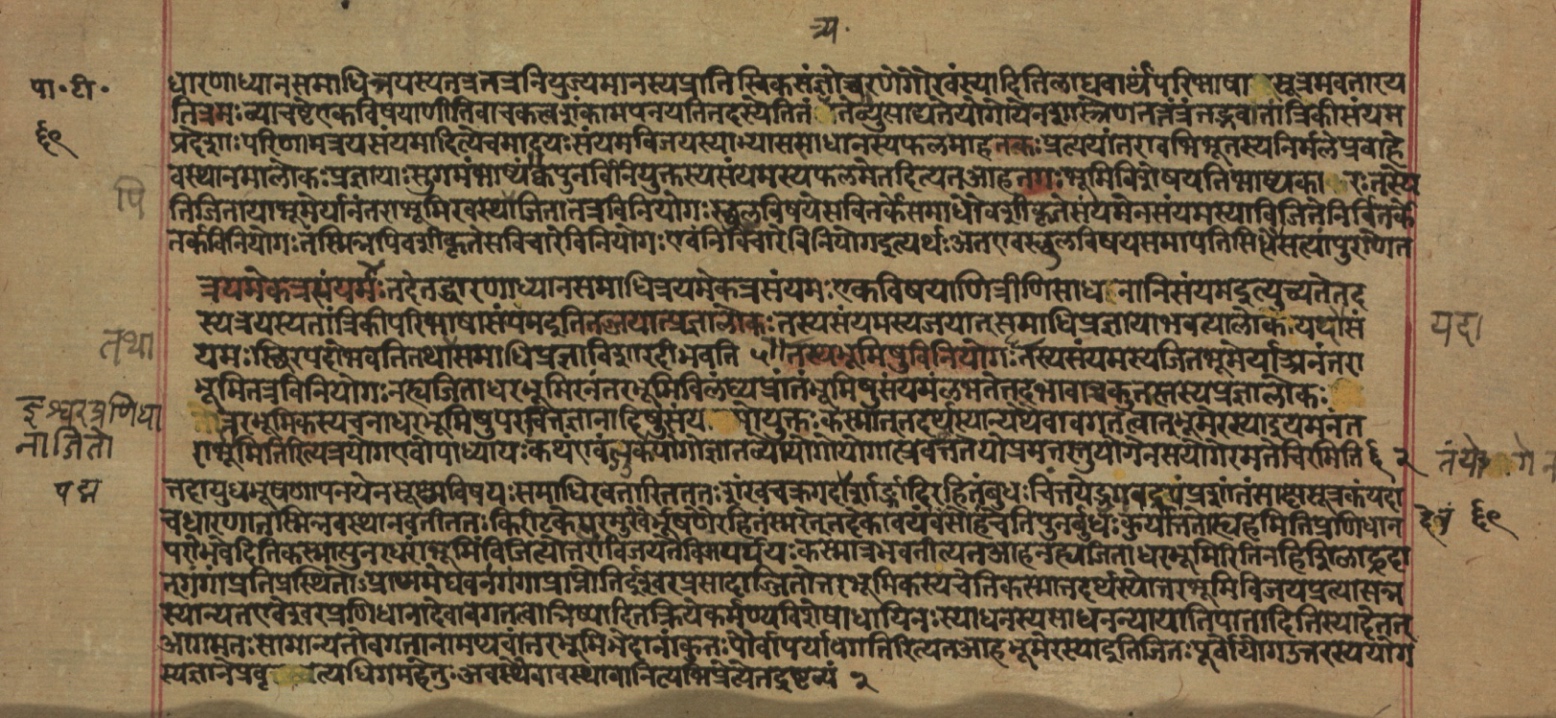 त्र्य.
पा॰ टी॰
६९
धारणाध्यानसमाधित्रयस्यतत्रतत्रनियुज्यमानस्यप्रातिस्विकसंज्ञोच्चारणेगौरवंस्यादितिलाघवार्थंपरिभाषासूत्रमवतारय
तित्रयमः व्याचष्टेएकविषयाणीतिवाचकत्वशंकामपनयतितदस्येतितंत्र्यतेव्युत्पाद्यतेयोगोयेनशास्त्रेणतत्तंत्रंतद्भवातांत्रिकीसंयम
प्रदेशाः परिणामत्रयसंयमादित्येवमादयः संयमविजयस्याभ्याससाधानस्यफलमाहतकः प्रत्ययांतरावभिभूतस्यनिर्मलेप्रवाहे
वस्थानमालोकः प्रज्ञायाः सुगमंभाष्यंक्वपुनर्विनियुक्तस्यसंयमस्यफलमेतदित्यतआहतगः भूमिविशेषयतिभाष्यकारः तस्ये
पि
तिजितायाभूमेर्यानंतराभूमिरवस्थाजितातत्रविनियोगः स्थूलविषयेसवितर्केसमाधौवशीकृतेसंयमेनसंयमस्याविजितेनिर्वितर्के
तर्कविनियोगः तस्मिन्नपिवशीकृतेसविचारेविनियोगः एवंनिर्विचारेविनियोगइत्यर्थः अतएवस्थूलविषयसमापत्तिसिद्धौसत्यांपुराणेत
त्रयमेकत्रसंयमः तदेतद्धारणाध्यानसमाधित्रयमेकत्रसंयमः एकविषयाणित्रीणिसाधनानिसंयमइत्युच्यतेतद
स्यत्रयस्यतांत्रिकीपरिभाषासंयमइतितज्जयात्प्रज्ञालोकः तस्यसंयमस्यजयात्समाधिप्रज्ञायाभवत्यालोकः यथासं
यदा
तथा
यमः स्थिरपदोभवतितथासमाधिप्रज्ञाविशारदीभवति ५ ॥ तस्यभूमिषुविनियोगः तस्यसंयमस्यजितभूमेर्याअनंतरा
भूमितत्रविनियोगः नह्यजिताधरभूमिरनंतराभूमिविलंघ्यप्रांतंभूमिषुसंयमंलभतेतदभावाच्चकुतस्तस्यप्रज्ञालोकः
ईश्वरप्रणिधा
नाजितो
त्तरभूमिकस्यचनाधरभूमिषुपरचित्तज्ञानादिषुसंयमोयुक्तः कस्मात्तदर्थस्यान्यथैवावगतत्वात्भूमेरस्याइयमनंत
राभूमिरितिरित्यत्रयोगएवोपाध्यायः कथंएवंह्युक्तंयोगोज्ञातव्योयोगोयोगात्प्रवर्त्ततेयोप्रमत्तस्तुयोगेनसयोगेरमतेचिरमिति ६ २
पद्म
त्तदायुधभूषणापनयेनसूक्ष्मविषयः समाधिरवतारितततः शंखचक्रगदाशार्ङ्गादिरहितंबुधः चिंतयेद्भगवद्रूपंप्रशांतंसाक्षसूत्रकंयदा
चधारणातस्मिन्नवस्थानवतीततः किरीटकेयूरमुखैर्भूषणैरहितंस्मरेत्तदेकावयवंसोहंचेतिपुनर्बुधः कुर्यात्ततोह्यहमितिप्रणिधान
देवं ६९
परोभवेदितिकस्मात्पुनरधरांभूमिंविजित्योत्तरांविजयतेविपर्ययः कस्मान्नभवतीत्यतआहनह्यजिताधरभूमिरितिनहिशिलाह्रदा
न्गंगांप्रतिप्रस्थितोः प्राप्यमेघवनंगंगांप्राप्नोतिईश्वरप्रसादाज्जितोत्तरभूमिकस्यचेतिकस्मात्तदर्थस्योत्तरभूमिविजयप्रत्यासन्न
स्यान्यतएवेश्वरप्रणिधानादेवावगतत्वान्निष्पादितक्रियेकर्मण्यविशेषाधायिनः स्याधनस्यसाधनन्यायातिपातादितिस्यादेतत्
आगमतः सामान्यतोवगतानामप्यवांतरभूमिभेदानांकुतः पौर्वापर्यावगतिरित्यतआहभूमेरस्याइतिजितः पूर्वोयोगउत्तरस्ययोग
स्यज्ञानेप्रवृत्त्यधिगमहेतु॰ अवस्थैवावस्थावानित्यभिप्रेत्यैतद्द्रष्टव्यं २